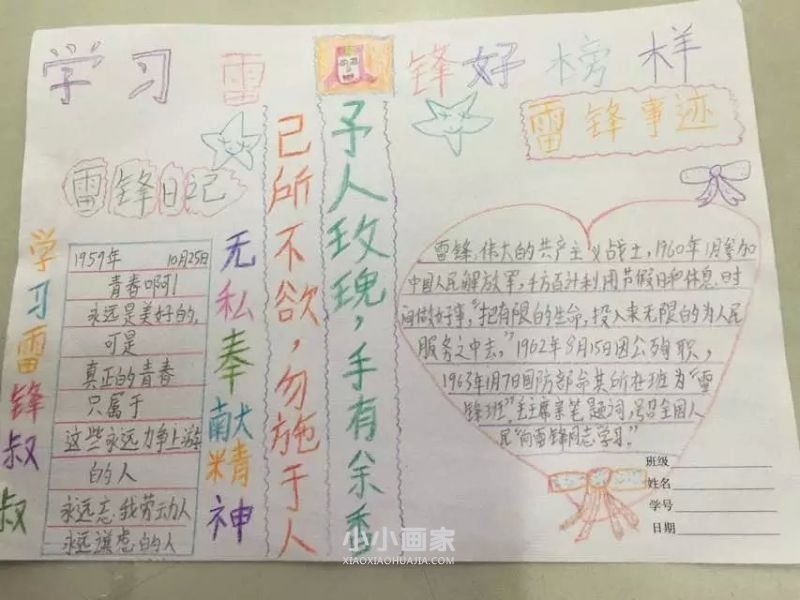 学习雷锋好榜样
雷锋事迹
雷锋日记
学习雷锋叔叔
1959年 10月25日
青春啊!
永远是美好的,
可是
真正的青春
只属于
这些永远力争上游
的人
永远忘我劳动人
永远谦虚的人
无私奉献精神
己所不欲,勿施于人
予人玫瑰,手有余香
雷锋,伟大的共产主义战士,1960年1月参加
中国人民解放军,千方百计利用节假日和休息时
间做好事,“把有限的生命,投入来无限的为人民
服务之中去。”1962年8月15日因公殉职,
1963年1月7日国防部命其所在班为“雷
锋班”,毛主席亲笔题词,号召全国人
民“向雷锋同志学习。”
班级
姓名
学号
日期
小小画家
XIAOXIAOHUAJIA.COM